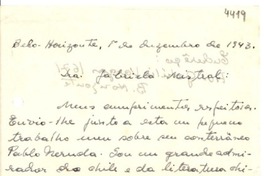 4419
Belo-Horizonte, 1º de dezembro de 1943.
Sra. Gabriela Mistral:
Meus cumprimentos respeitosos.
Envio-lhe junto a esta um pequeno
trabalho meu sobre seu conterrâneo
Pablo Neruda. Sou um grande admi-
rador do Chile e da literatura chi-